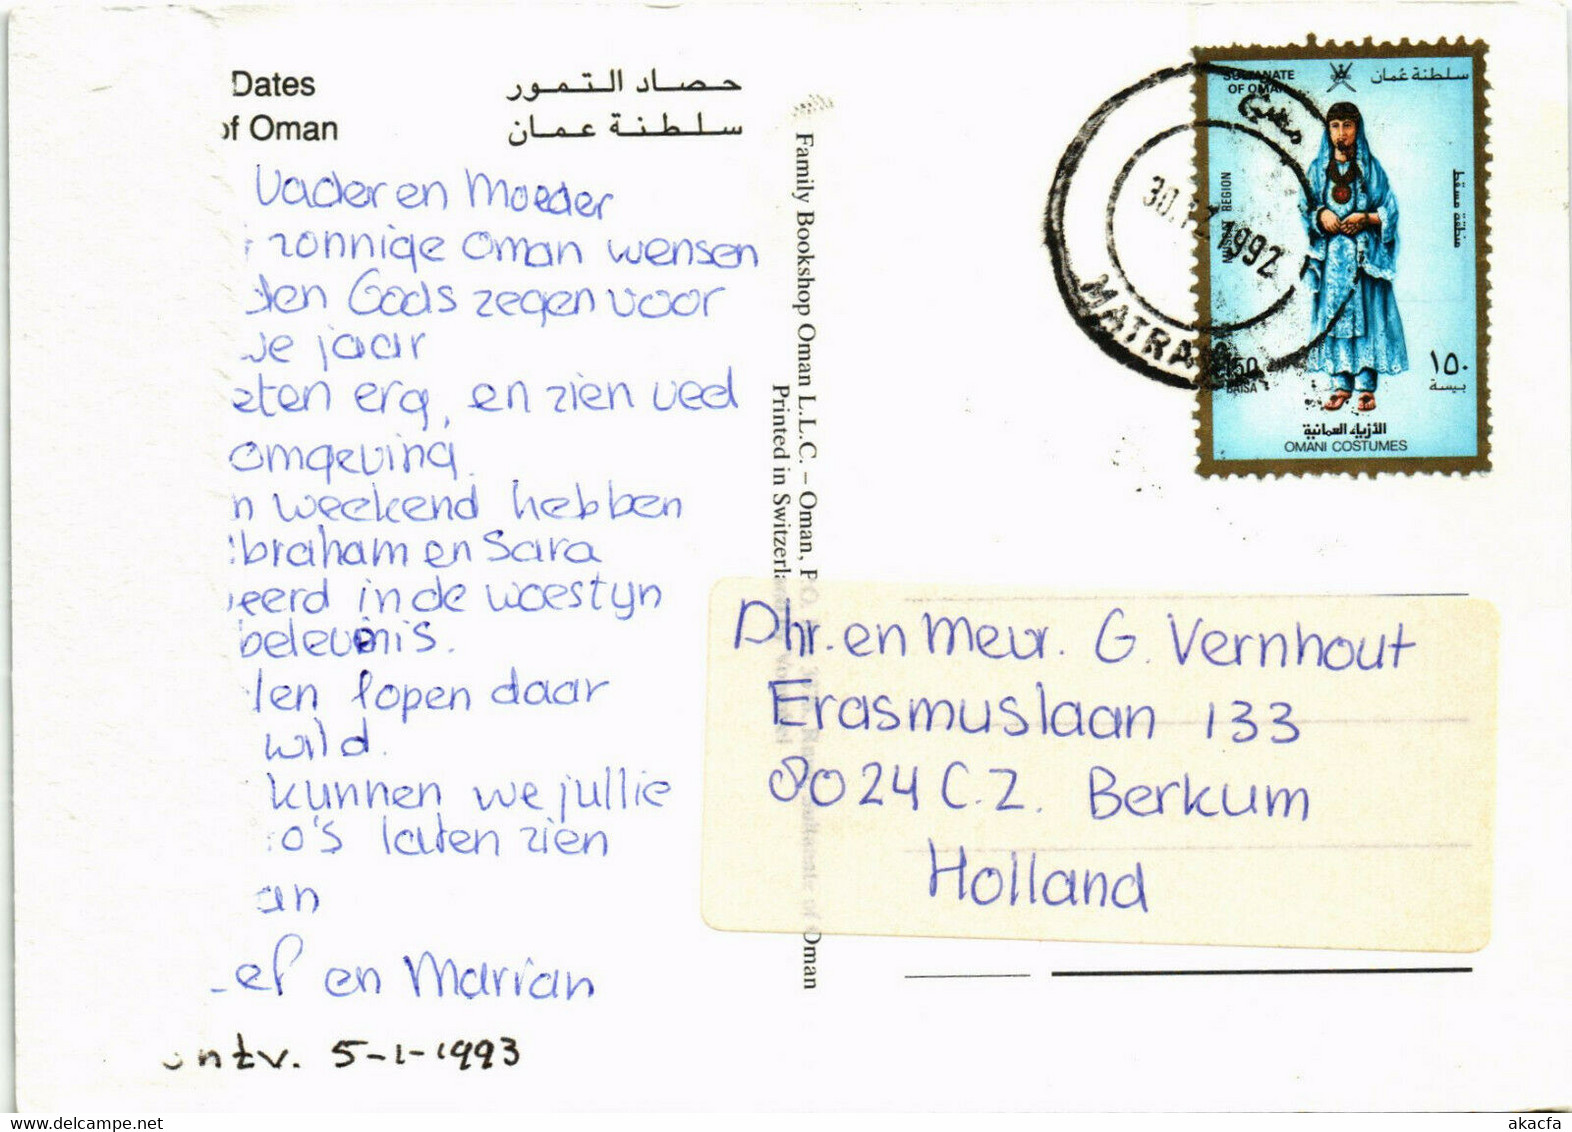 Dates
of Oman
حصاد التمور
سلطنة عمان
Vader en Moeder
zonnige Oman wensen
den Gods zegen voor
we jaar
eten erg, en zien veel
omgeving.
n weekend hebben
Abraham en Sara
eerd in de woestyn
belevenis.
len lopen daar
wild.
kunnen we jullie
o's laten zien
an
ef en Marian
ontv. 5-1-1993
Family Bookshop Oman L.L.C. – Oman, P.O.
Sultanate of Oman
Printed in Switzerland
SULTANATE
OF OMAN
سلطنة عمان
MUSCAT REGION
منطقة مسقط
150
BAISA
١٥٠
بيسة
الأزياء العمانية
OMANI COSTUMES
1992
MATRAH
Dhr. en Mevr. G. Vernhout
Erasmuslaan 133
8024 C.Z. Berkum
Holland
akacfa